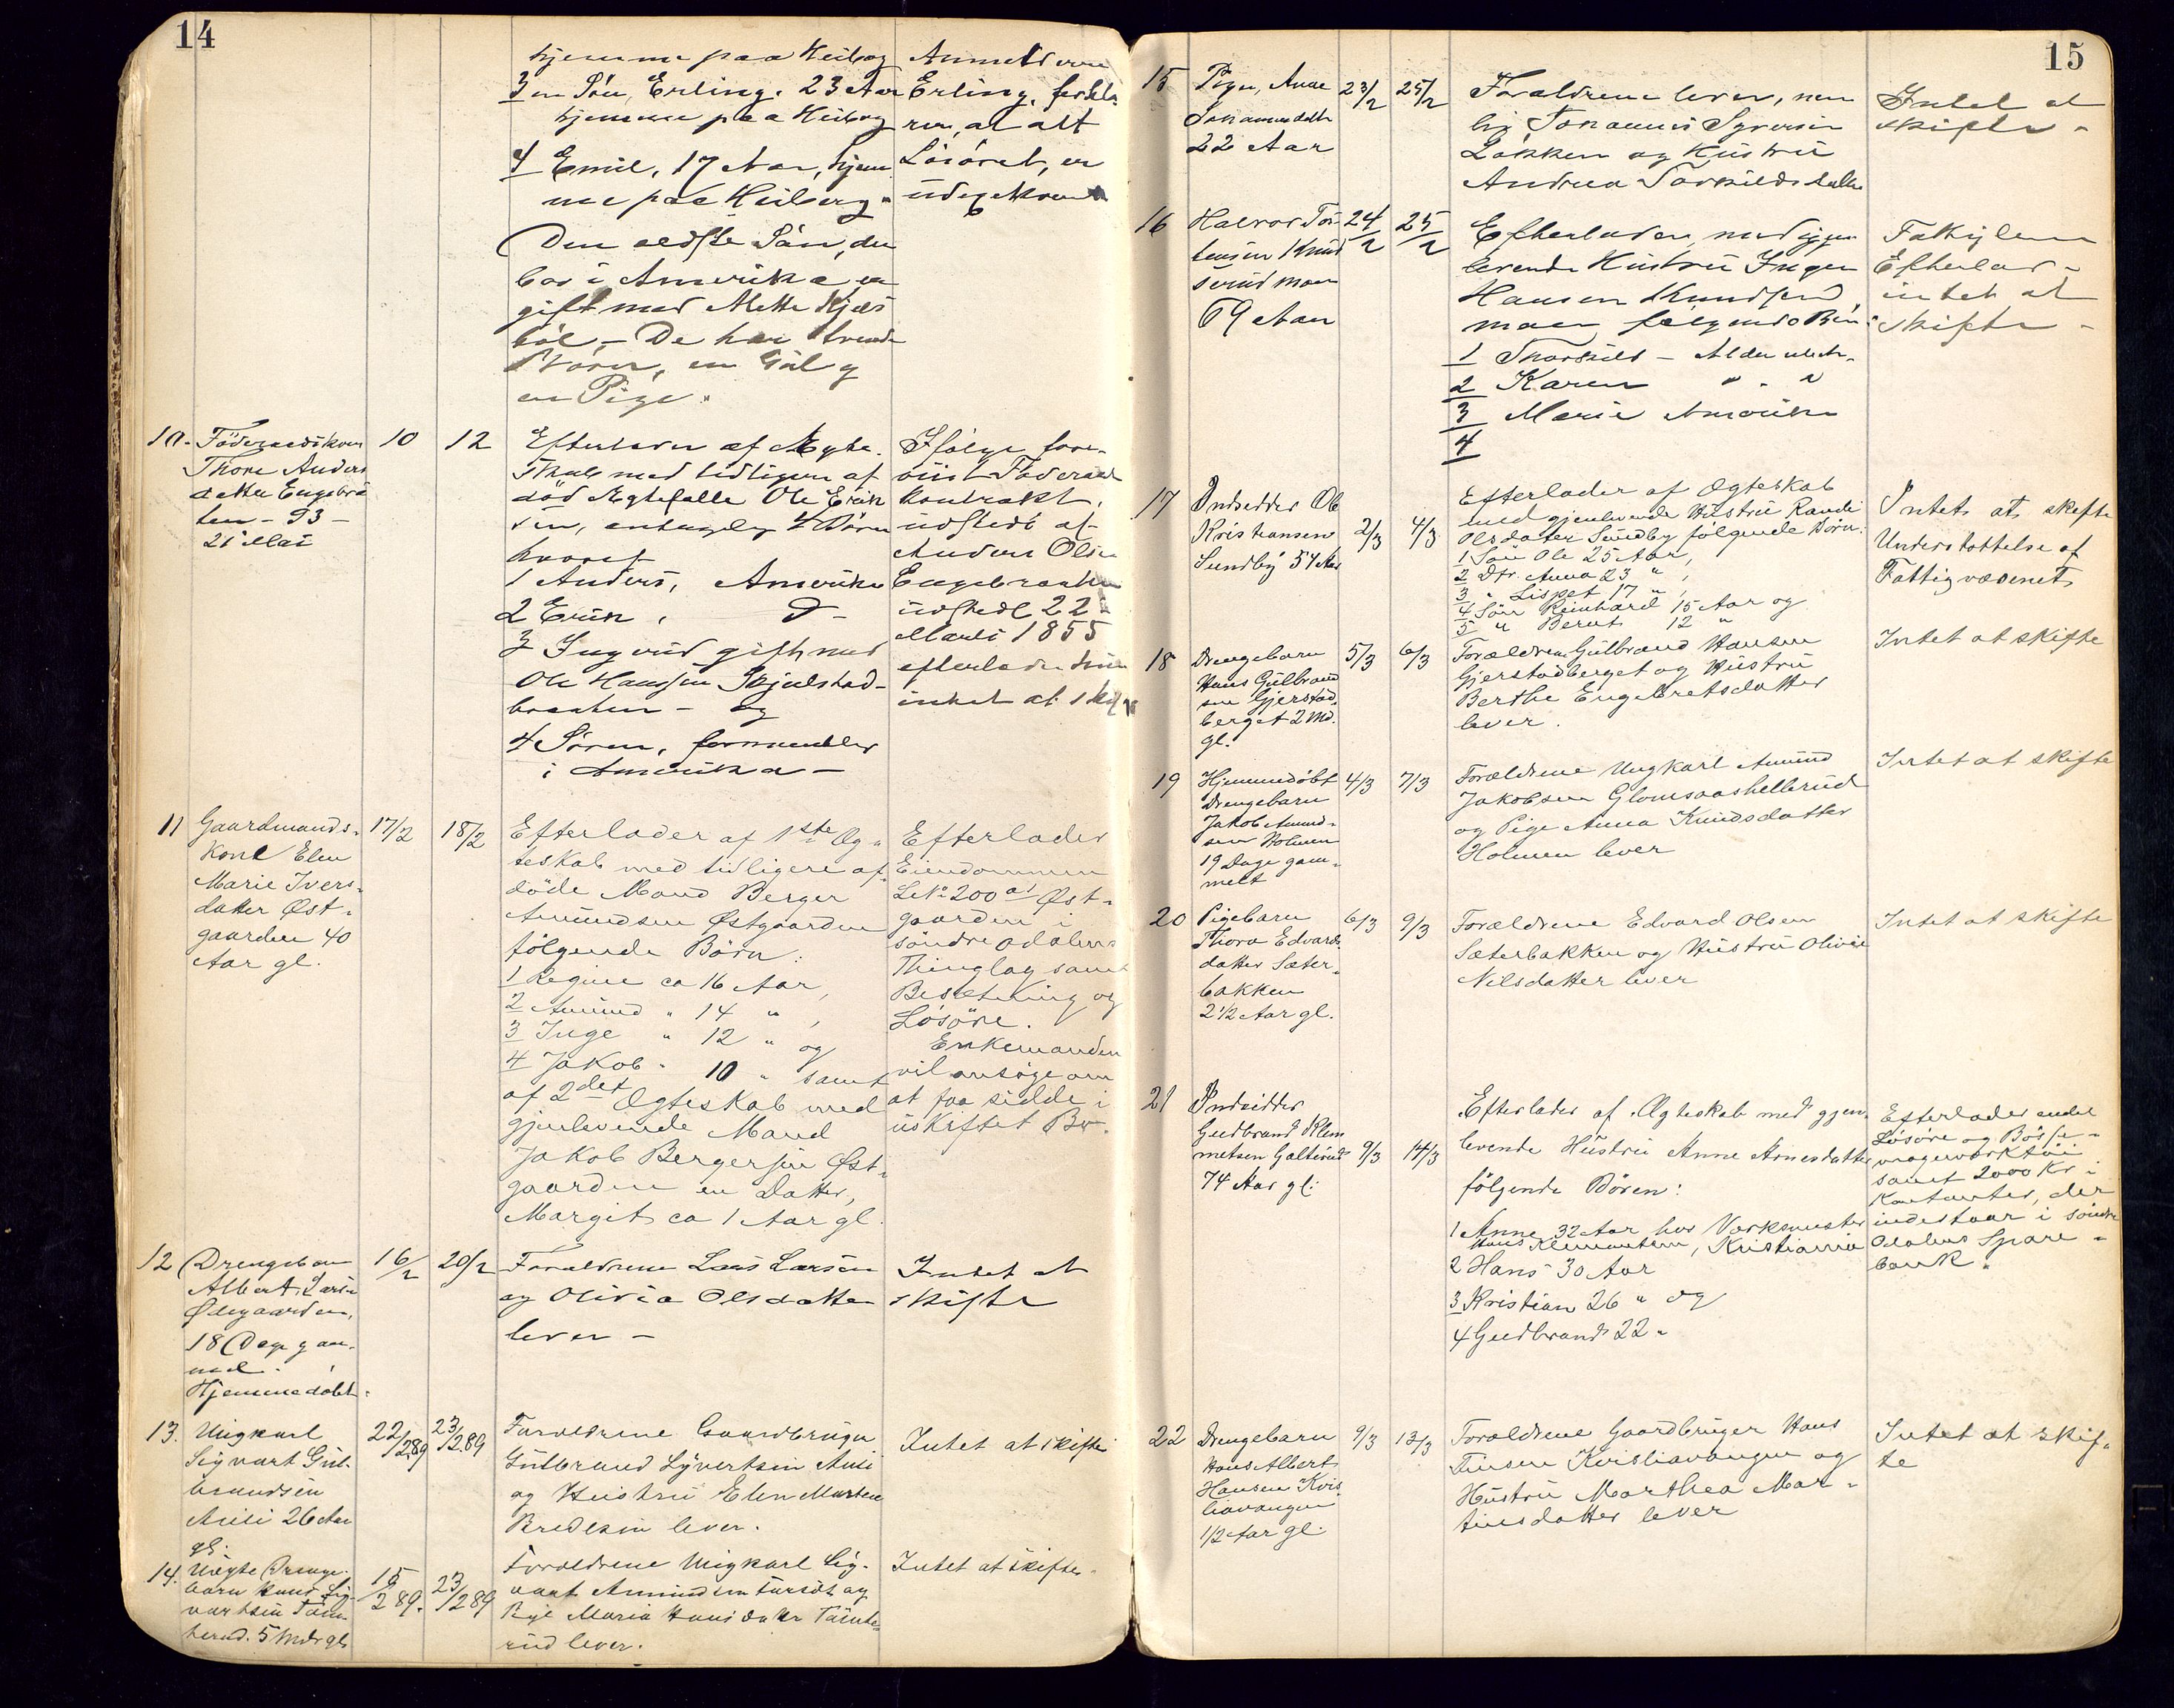 14
hjemme paa Heiberg
3 en Sön, Erling. 23 Aar
hjemme paa Heiberg
4 Emil, 17 Aar, hjem
me paa Heiberg.
Den ældste Sön, der
bor i Amerika er
gift med Mette Kjæs
böl. De har tvende
Börn, en Gut og
en Pige.
Anmelderen
Erling, forkla
rer, at alt
Lösöret, er
10.
Föderaadskone
Thore Anders
datter Engebra
ten - 93 -
21 Mai
10
12
Efterlader af Ægte
skab med tidligere af
död Ægtefælle Ole Erik
sen, 4 Börn
hvoraf
1 Anders, Amerika
2 Erik, do
3 Ingrid gift med
Ole Hansen Skjulstad-
braaten - og
4 Sören, formentlig
i Amerika -
Ifölge fore-
viist Föderaads
kontrakt,
udstedt af
Anders Olsen
Engebraaten
udstedt 22
Marts 1855
efterlader hun
intet at skifte
11
Gaardmands-
kone Elen
Marie Ivers-
datter Øst-
gaarden 40
Aar gl.
17/2
18/2
Efterlader af 1ste Æg-
teskab med tidligere af-
döde Mand Berger
Amundsen Østgaarden
fölgende Börn:
1 Regine ca 16 Aar,
2 Amund " 14 " ,
3 Inge " 12 " og
4 Jakob " 10 " samt
af 2det Ægteskab med
gjenlevende Mand
Jakob Bergersen Øst-
gaarden en Datter,
Margit ca 1 Aar gl.
Efterlader
Eiendommen
LNo 200 a, Øst-
gaarden i
söndre Odalens
Thinglag samt
Besætning og
Lösöre.
Enkemanden
vil ansöge om
at faa sidde i
uskiftet Bo.
12
Drengebarn
Albert Larsen
Ødegaarden,
18 Dage gam-
mel.
Hjemmedöbt.
16/2
20/2
Forældrene Lars Larsen
og Olivia Olsdatter
lever -
Intet at
skifte
13.
Ungkarl
Sigvart Gul-
brandsen
Auli 26 Aar
gl.
22/2 89
23/2 89
Forældrene Gaardbruger
Gulbrand Syvertsen Auli
og Hustru Elen Marthea
Bredesen lever.
Intet at skifte
14.
Uægte Drenge-
barn Hans Sig-
vartsen Tömte
herud. 5 Mdr gl.
15/2 89.
23/2 89
Forældrene Ungkarl Sig-
vart Amundsen og
Pige Maria Hansdatter Tömte-
rud lever.
Intet at skifte.
15
15
Pigen, Anne
Johannesdatter
22 Aar
23/2
25/2
Forældrene lever, nem
lig Johannes Syversen
Løkken og Hustru
Andrea Torkildsdatter
Intet at
skifte -
16
Halvor Tor-
stensen Knud
serudmoen
69 Aar
24/2
25/2
Efterlader, med gjen
levende Hustru Inger
Hansen Knudserud
moen fölgende Börn:
1 Thorkild - Alder ubek.
2 Karen " - "
3 Marie Amerika
4
Fattiglem
Efterlad-
intet at
skifte -
17
Indsidder Ole
Kristiansen
Sundby 54 Aar
2/3
4/3
Efterlader af Ægteskab
med gjenlevende Hustru Randi
Olsdatter Sundby fölgende Börn:
1 Sön Ole 25 Aar,
2 Dtr. Anna 23 " ,
3 " Lispet 17 " ,
4 Sön Reinhard 15 Aar og
5 " Bernt 12 "
Intet at skifte
Understöttelse af
Fattigvæsenet
18
Drengebarn
Hans Gulbrand
sen Gjerstad
berget 2 Md.
gl.
5/3
6/3
Forældrene Gulbrand Hansen
Gjerstadberget og Hustru
Berthe Engebretsdatter
lever.
Intet at skifte
19
Hjemmedöbt
Drengebarn
Jakob Amund-
sen Holmen
19 Dage gam-
melt
4/3
7/3
Forældrene Ungkarl Amund
Jakobsen Glomsaashellerud
og Pige Anna Knudsdatter
Holmen lever
Intet at skifte
20
Pigebarn
Thora Edvards
datter Sæter-
bakken
2 1/2 Aar gl.
6/3
9/3
Forældrene Edvard Olsen
Sæterbakken og Hustru Olivie
Nilsdatter lever
Intet at skifte
21
Indsidder
Gudbrand Klem
metsen Galterud
74 Aar gl:
9/3
14/3
Efterlader af Ægteskab med gjen-
levende Hustru Anne Arnesdatter
fölgende Börn:
1 Anne 32 Aar hos Værksmester
Hans Klementsen, Kristiania
2 Hans 30 Aar
3 Kristian 26 " og
4 Gudbrand 22 "
Efterlader endel
Lösöre og Bösse-
magerværktöi
samt 2000 Kr i
Kontanter, der
indestaar i söndre
Odalens Spare-
bank.
22
Drengebarn
Hans Albert
Hansen Kris
tiavangen
1/2 Aar gl.
9/3
13/3
Forældrene Gaardbruger Hans
Finsen Kristiavangen og
Hustru Marthea Mar-
tinsdatter lever
Intet at skif-
te